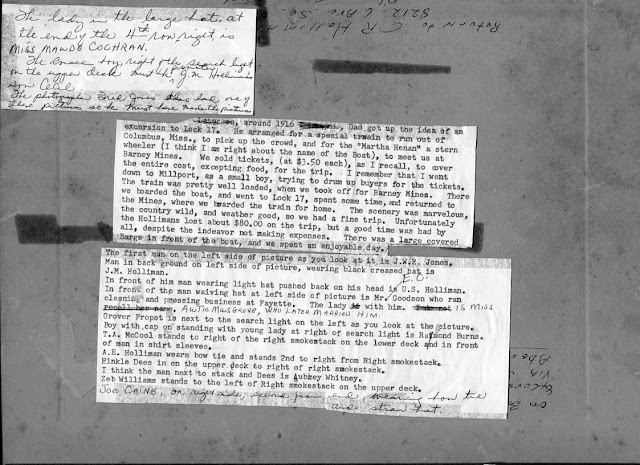 The lady in the large hat, at
the end of the 4th row, right, is
MISS MAUDE COCHRAN.
The boy, right of the search light
on the upper deck must be J.M. Holliman's
son Cecil
The photographer Fred Jones had one of
these pictures so he must have made the picture
Return to
C R Hollim
5212 C
Later on, around 1916 Dad got up the idea of an
excursion to Lock 17. He arranged for a special train to run out of
Columbus, Miss., to pick up the crowd, and for the "Martha Henan" a stern
wheeler (I think I am right about the name of the Boat), to meet us at
Barney Mines. We sold tickets, (at $3.50 each), as I recall, to cover
the entire cost, excepting food, for the trip. I remember that I went
down to Millport, as a small boy, trying to drum up buyers for the tickets.
The train was pretty well loaded, when we took off for Barney Mines. There
we boarded the boat, and went to Lock 17, spent some time, and returned to
the Mines, where we boarded the train for home. The scenery was marvelous,
the country wild, and weather good, so we had a fine trip. Unfortunately
the Hollimans lost about $80.00 on the trip, but a good time was had by
all, despite the indeavor not making expenses. There was a large covered
Barge in front of the boat, and we spent an enjoyable day.
The first man on the left side of picture as you look at it is J.W.R. Jones.
Man in back ground on left side of picture, wearing black creased hat is
J.M. Holliman.
In front of him man wearing light hat pushed back on his head is U.S. Holliman.
In front of the man waiving hat at left side of picture is Mr. E.C. Goodson who ran
cleaning and pressing business at Fayette. The lady is with him. IS MISS
recall her name. AUTIE MUSGROVE, WHO LATER MARRIED HIM.
Grover Propst is next to the search light on the left as you look at the picture.
Boy with cap on standing with young lady at right of search light is Raymond Burns.
T.A. McCool stands to right of the right smokestack on the lower deck and in front
of man in short sleeves.
A.E. Holliman wears bow tie and stands 2nd to right from Right smokestack.
Hinkle Dees in on the upper deck to right of right smokestack.
I think the man next to stack and Dees is Aubrey Whitney.
Zeb Williams stands to the left of Right smokestack on the upper deck.
JOE CAINE, on right side, second from end, wearing bow tie
and straw hat.